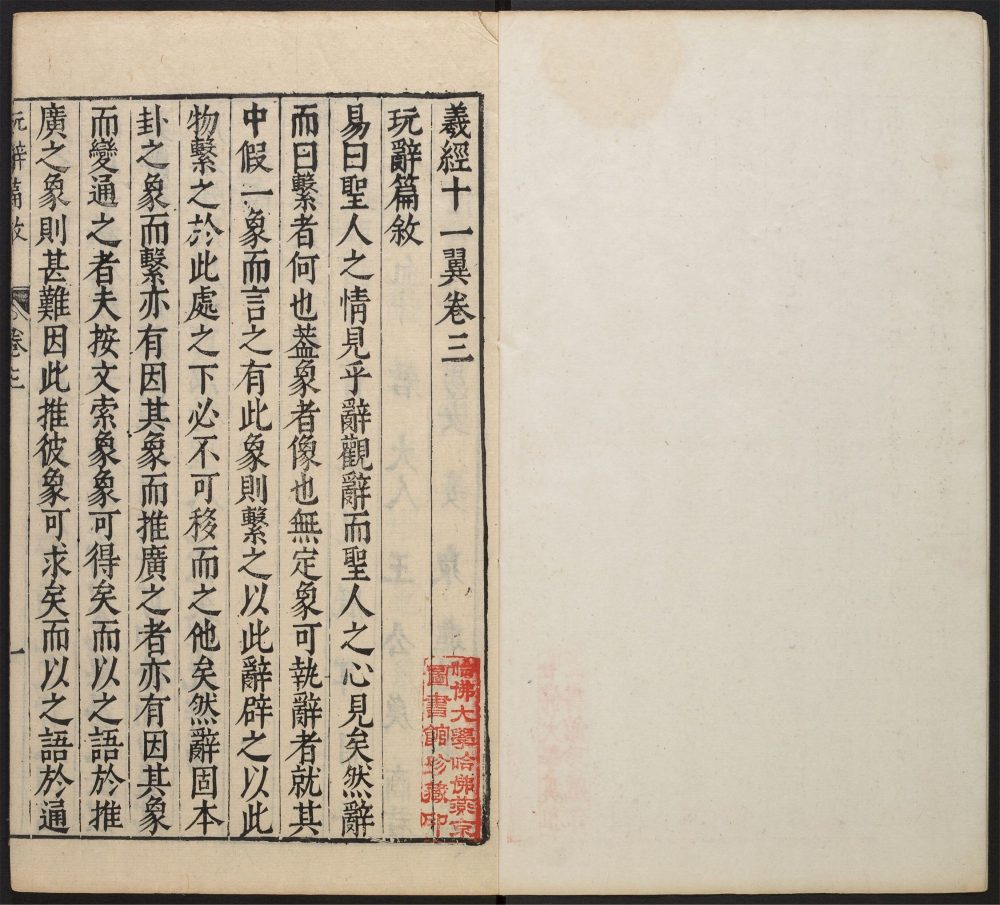 羲經十一翼卷三
玩辭篇敘
易曰聖人之情見乎辭觀辭而聖人之心見矣然辭
而曰繫者何也葢象者像也無定象可執辭者就其
中假一象而言之有此象則繫之以此辭辟之以此
物繫之於此處之下必不可移而之他矣然辭固本
卦之象而繫亦有因其象而推廣之者亦有因其象
而變通之者夫按文索象象可得矣而以之語於推
廣之象則甚難因此推彼象可求矣而以之語於通
玩辭篇敘 卷三 一
哈佛大學哈佛燕京
圖書館珍藏印